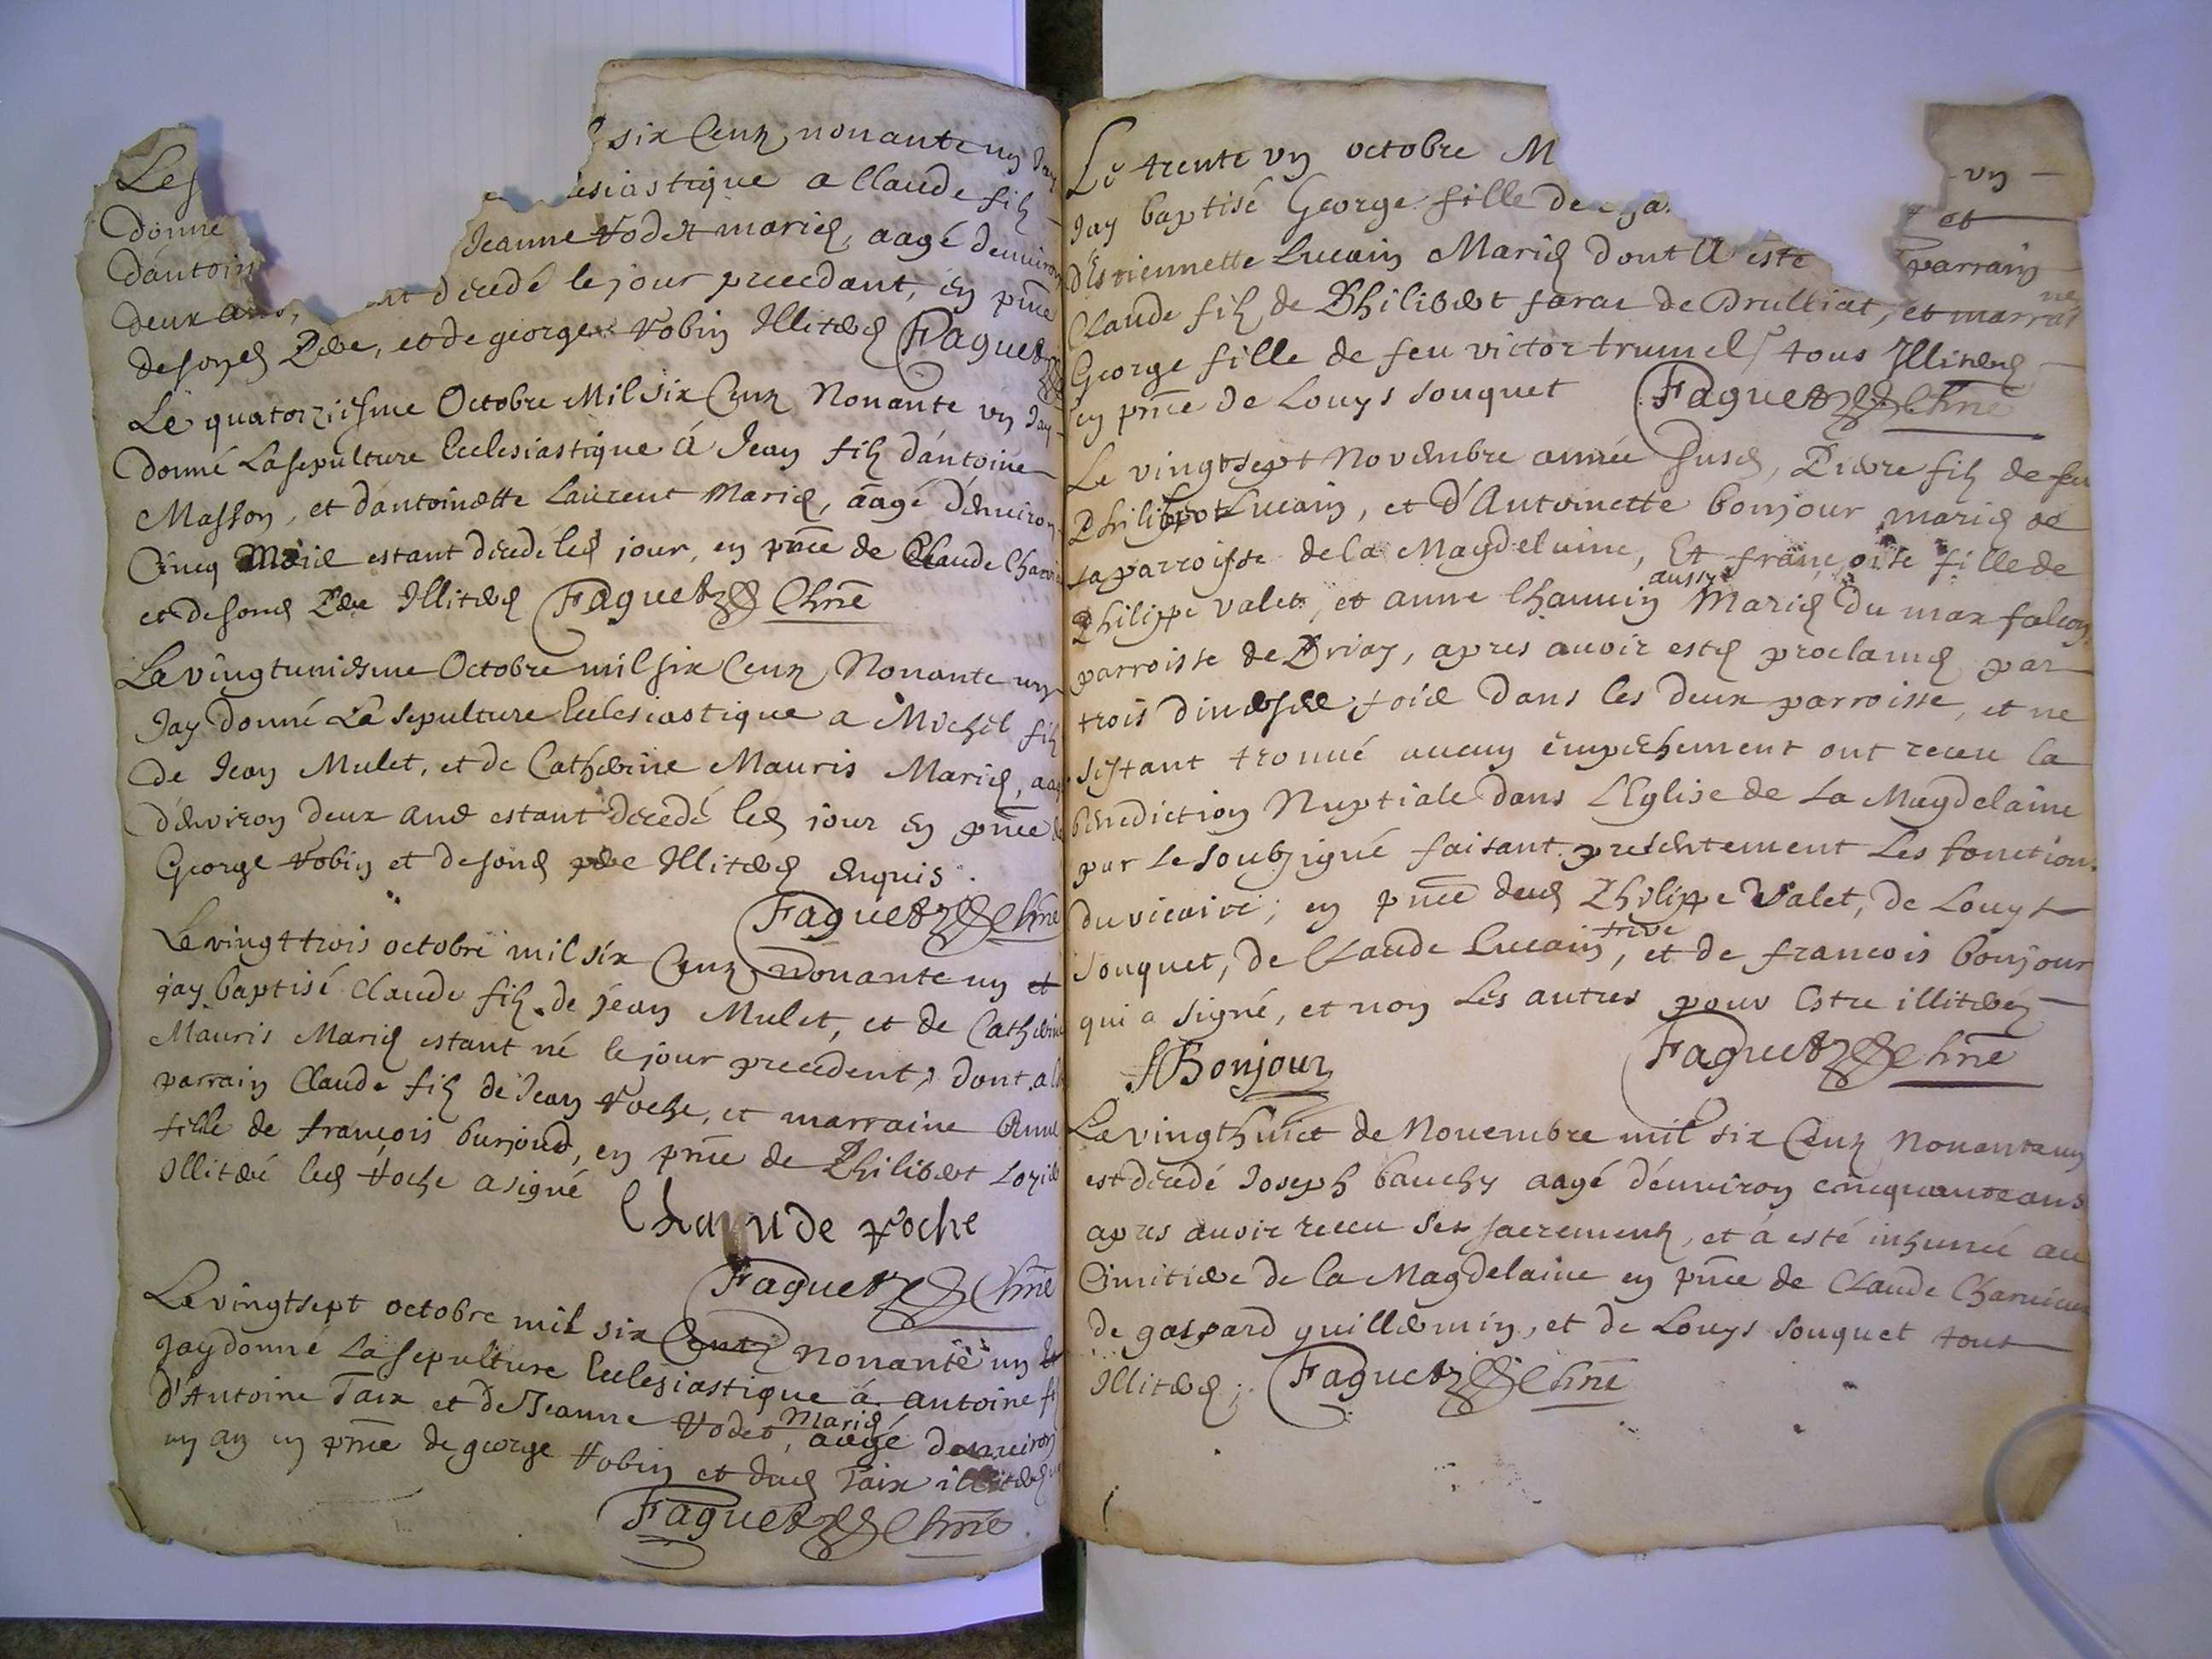 six Cenz nonante un Jay
Les
esiastique a Claude filz
donné
Jeanne Vodet mariez, aagé denuiron
dantoin
nt decedé le jour precedant, en pñce
deux ans,
de sondt Pere, et de george Vobin Illiterez Faguet
Le quatorziesme Octobre Mil six Cenz Nonante un Jay
donné La sepulture Ecclesiastique á Jean filz d'antoine
Masson, et d'antoinette Laurent Mariez, aagé d'enuiron
Cinq Mois estant decedé led jour, en pñce de Claude
et de sond Pere Illiterez Faguet Chñe
Le vingtuniesme Octobre mil six Cenz Nonante un
Jay donné La sepulture Ecclesiastique a Michel filz
de Jean Mulet, et de Catherine Mauris Mariez, aagé
d'environ deux ans estant decedé led jour en pñce de
George Vobin et de sond pere Illiterez enquis.
Faguet Chñe
Le vingt trois octobre mil six Cenz nonante un et
jay baptisé Claude filz de jean Mulet, et de Catherine
Mauris Mariez estant né le jour precedent, dont a
parrain Claude filz de Jean Voche, et marraine Anne
fille de françois burjoud, en pñce de Philibert
Illiteré led Voche a signé
Chaude voche
Faguet Chñe
Le vingtsept octobre mil six Cenz nonante un Et
Jay donné La sepulture Ecclesiastique á antoine fi
d'Antoine Taix et de Jeanne Vodet, Mariez aagé d'enuiron
un an en pñce de george Vobin et dud Taix illiterez
Faguet Chñe
Le trente un octobre M un
Jay baptisé George fille de et
d'Estiennette Lucain Mariez dont a esté parrain
Claude filz de Philibert farac de Drulliat, et marraine
George fille de feu victor trumel tous Illiterez
en pñce de Louys souquet Faguet Chñe
Le vingtsept Novembre année susd, Pierre filz de feu
Philibert Lucain, et d'Antoinette bonjour mariez de
La parroisse de la Magdelaine, Et françoise fille de
Philippe valet, et anne Chauuin aussy Mariez du max falcon
parroisse de Priay, apres auoir estez proclamez par
trois diuerses fois dans les deux parroisse, et ne
s'estant trouué aucun empechement ont receu la
benediction Nuptiale dans L'Eglise de La Magdelaine
par Le soubsigné faisant presentement Les fonctions
du vicaire, en pñce dud Philippe Valet, de Louys
souquet, de Claude Lucain frere, et de francois bonjour
qui a signé, et non Les autres pour Estre illiterez
f Bonjour
Faguet Chñe
Le vingthuict de Nouembre mil six Cenz nonante un
est decedé Joseph bauchy aagé d'enuiron cinquante ans
apres auoir receu ses sacrementz, et á esté inhumé au
Cimitiere de la Magdelaine en pñce de Claude
de gaspard guillermin, et de Louys souquet tous
Illiterez; Faguet Chñe